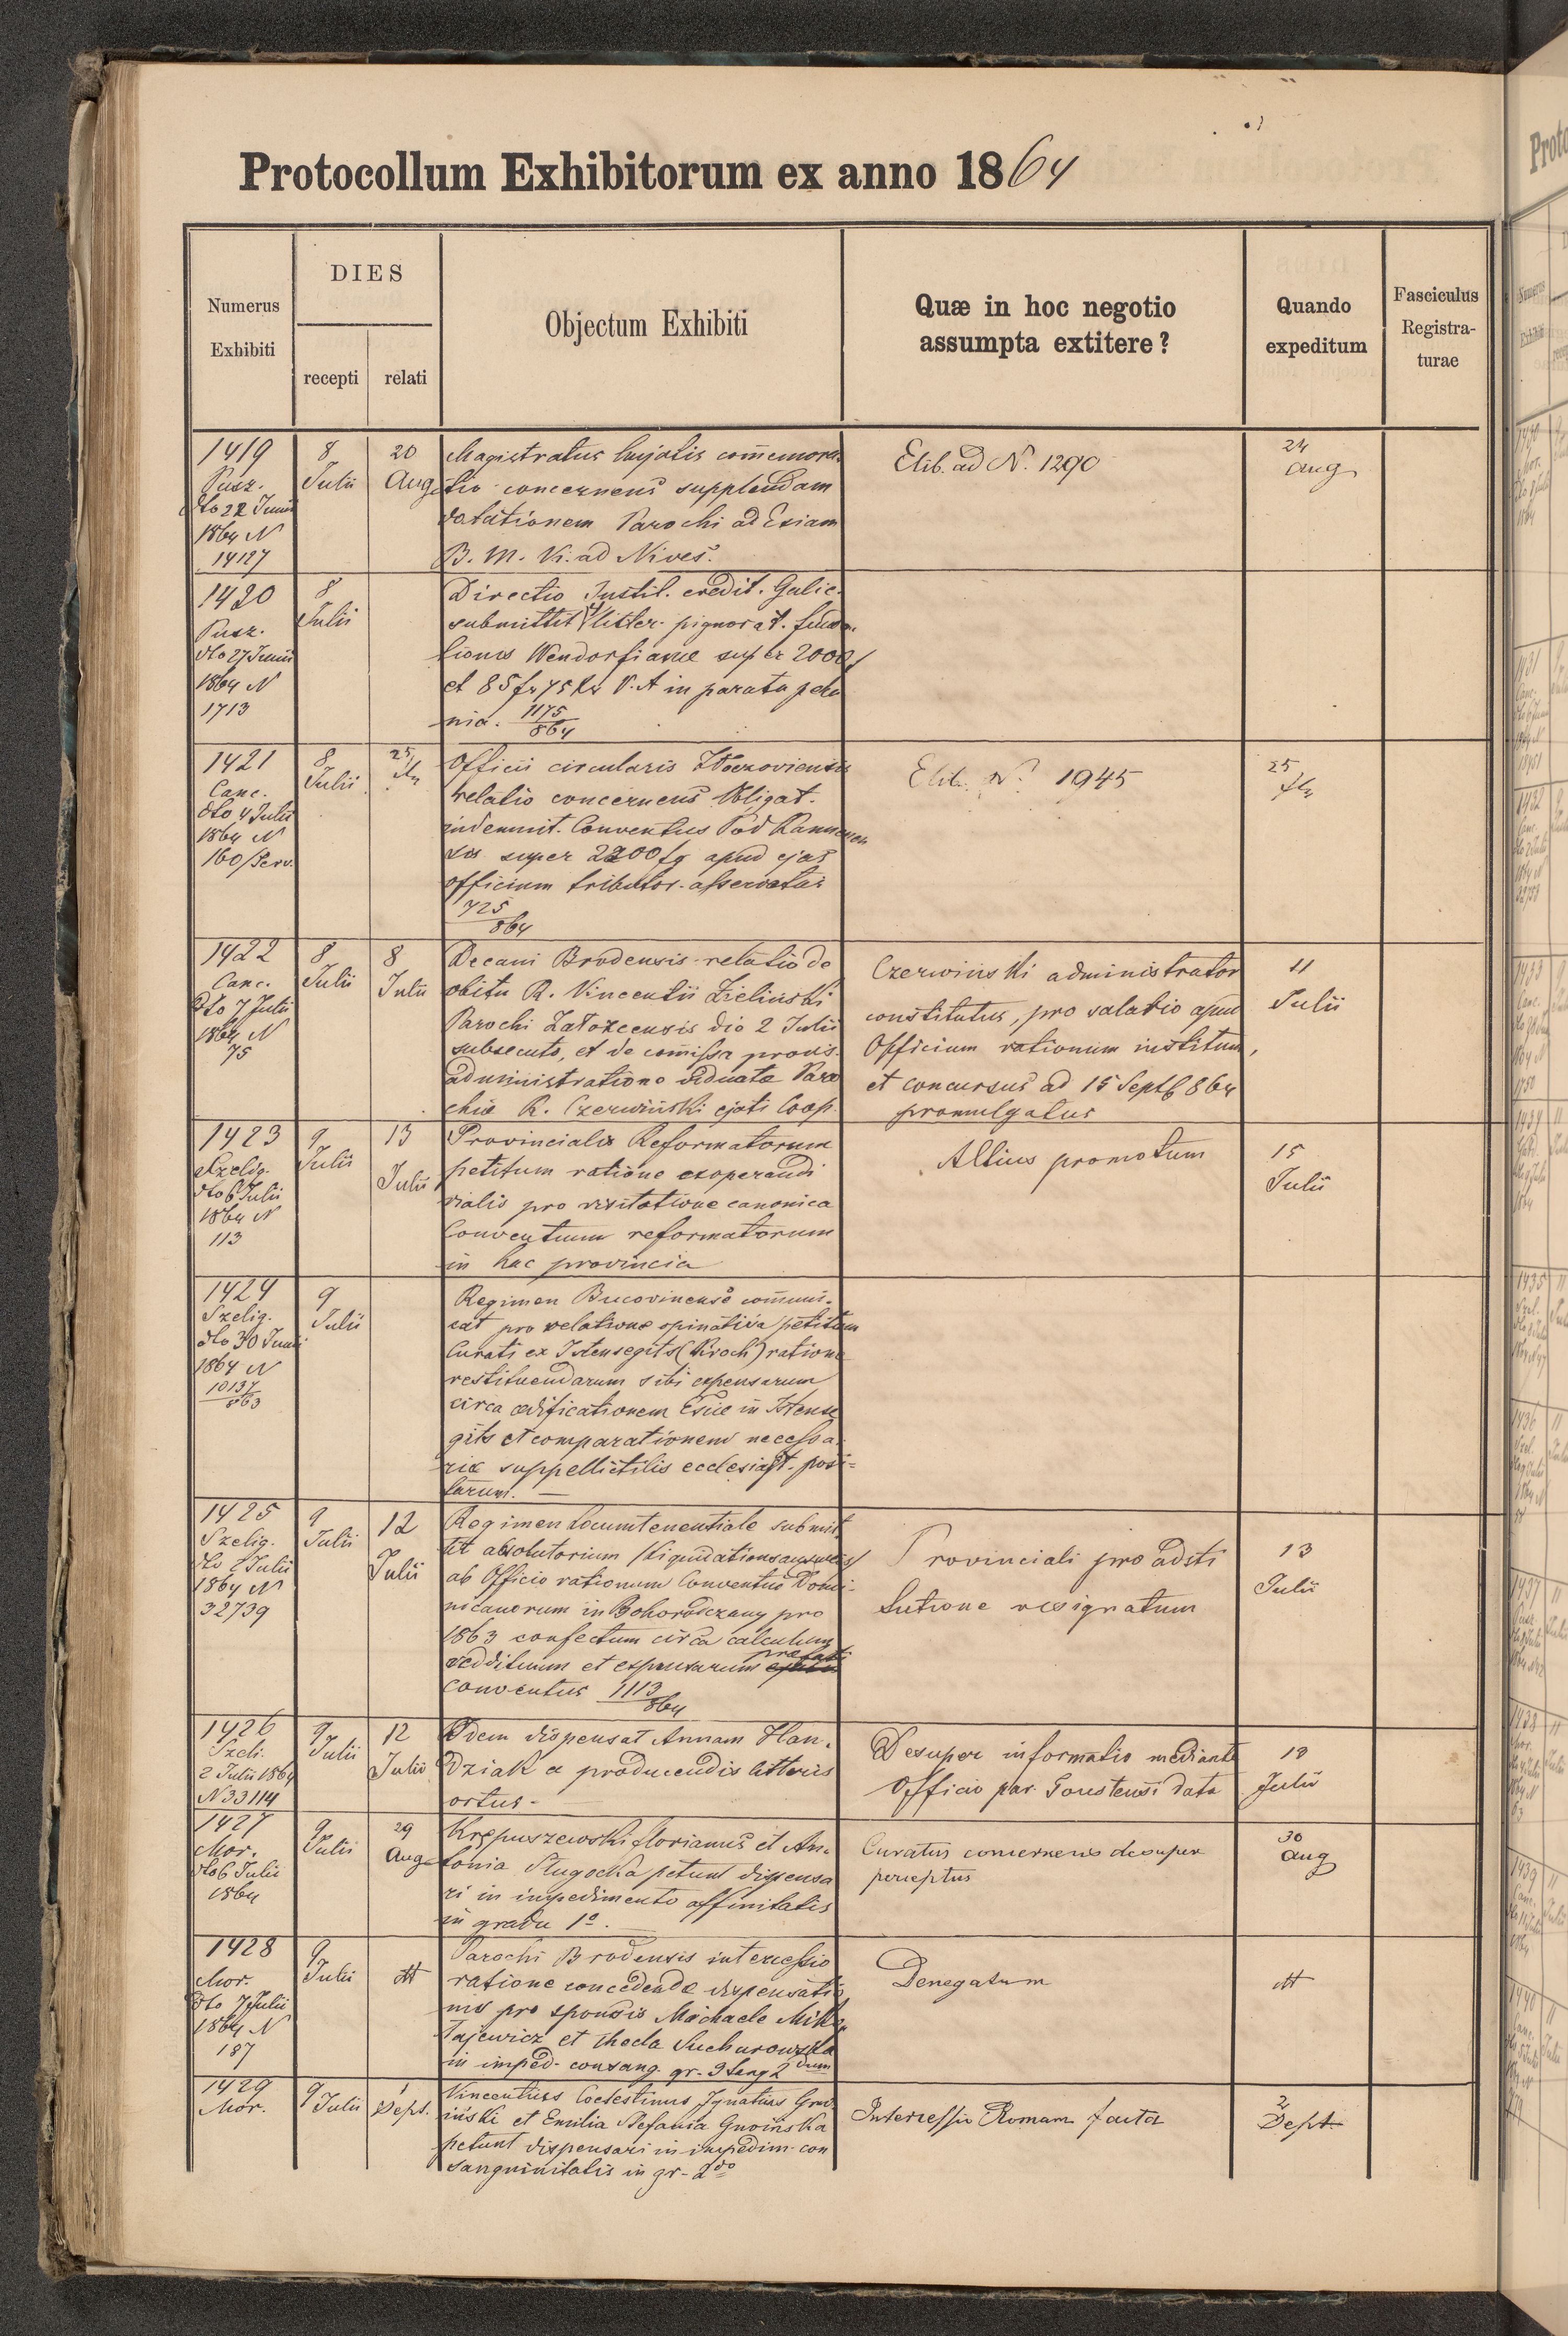 Protocollum Exhibitorum ex anno 1864
Numerus Exhibiti
DIES
recepti
relati
Objectum Exhibiti
Quæ in hoc negotio
assumpta extitere?
Quando
expeditum
Fasciculus
Registra-
turae
1419
Pusz.
dto 22 Junii
1864 N
14127
8
Julii
20
Aug.
Magistratus hujatis commemora-
tio concernens supplendam
dotationem Parochi ad Eciam
B. M. V. ad Nives.
Elib. ad N. 1290
24
Aug
1420
Pusz.
dto 27 Junii
1864 N
1713
8
Julii
Directio Instit. credit. Galic.
submittit litter. pignorat. funda-
tionis Wendorfianae super 2000f
et 85 fr 75 kr V. A in parata pecu
nia. 1175/864
1421
Canc.
dto 4 Julii
1864 N
160/Serv.
8
Julii
25
Officii circularis Złoczoviensis
relatio concernens Obligat.
indemnit. Conventus Podkamenen
sis super 2200 fg apud ejas
officium tributor. asservatas
725/864
Elib. N. 1945
25
1422
Canc.
dto 7 Julii
1864 N
75
8
Julii
8
Julii
Decani Brodensis relatio de
obitu R. Vincentii Zieliński
Parochi Załozcensis die 2 Julii
subsecuto, et de comissa provis.
administratione viduatae Paro
chiae R. Czerwiński ejati Coop.
Czerwiński administrator
constitutus, pro salario apud
Officium rationum institum,
et concursus ad 15 Septb 864
promulgatus
11
Julii
1423
Szelig.
dto 6 Julii
1864 N
113
9
Julii
13
Julii
Provincialis Reformatorum
petitum ratione exoperandi
vialis pro visitatione canonica
Conventuum reformatorum
in hac provincia
Altius promotum
15
Julii
1424
Szelig.
dto 30 Junii
1864 N
10137/863
9
Julii
Regimen Bucovinense communi-
cat pro relatione opinativa petitum
Curati ex Istensegits (Kroch) ratione
restituendarum sibi expensarum
circa aedificationem Eciae in Istense
gits et comparationem necessa-
riae suppellictilis ecclesiast. posi-
tarum.
1425
Szelig.
dto 2 Julii
1864 N
32739
9
Julii
12
Julii
Regimen Locumtenentiale submit
tit absolutorium /Liquidationsausweis/
ab Officio rationum Conventus Domi-
nicanorum in Bohorodczany pro
1863 confectum circa calculum
reddituum et expensarum prefati
conventus 1113/864
Provinciali pro adsti
tutione resignatum
13
Julii
1426
Szeli.
2 Julii 1864
N 33114
9
Julii
12
Julii
Idem dispensat Annam Han-
dziak a producendis litteris
ortus.
Desuper informatio mediante
Officio par. data
13
Julii
1427
Mor.
dto 6 Julii
1864
9
Julii
29
Aug.
Krępuszewski Florianus et An-
tonia Długocka petunt dispensa
ri in impedimento affinitatis
in gradu 1º.
Curatus concernens desuper
perceptus
30
Aug
1428
Mor.
dto 7 Julii
1864 N
187
9
Julii
Parochi Brodensis intercessio
ratione concedendae dispensatio
nis pro sponsis Michaele Miko
łajewicz et Thecla Sucharowska
in imped. consang. gr. 3 tang 2dum
Denegatum
1429
Mor.
9 Julii
1
Sept.
Vincentius Coelestinus Ignatius
iński et Emilia Stefania Gnoińska
petunt dispensari in impedim. con
sanguinitatis in gr. 2do
Intercessio Romam facta
2
Sept